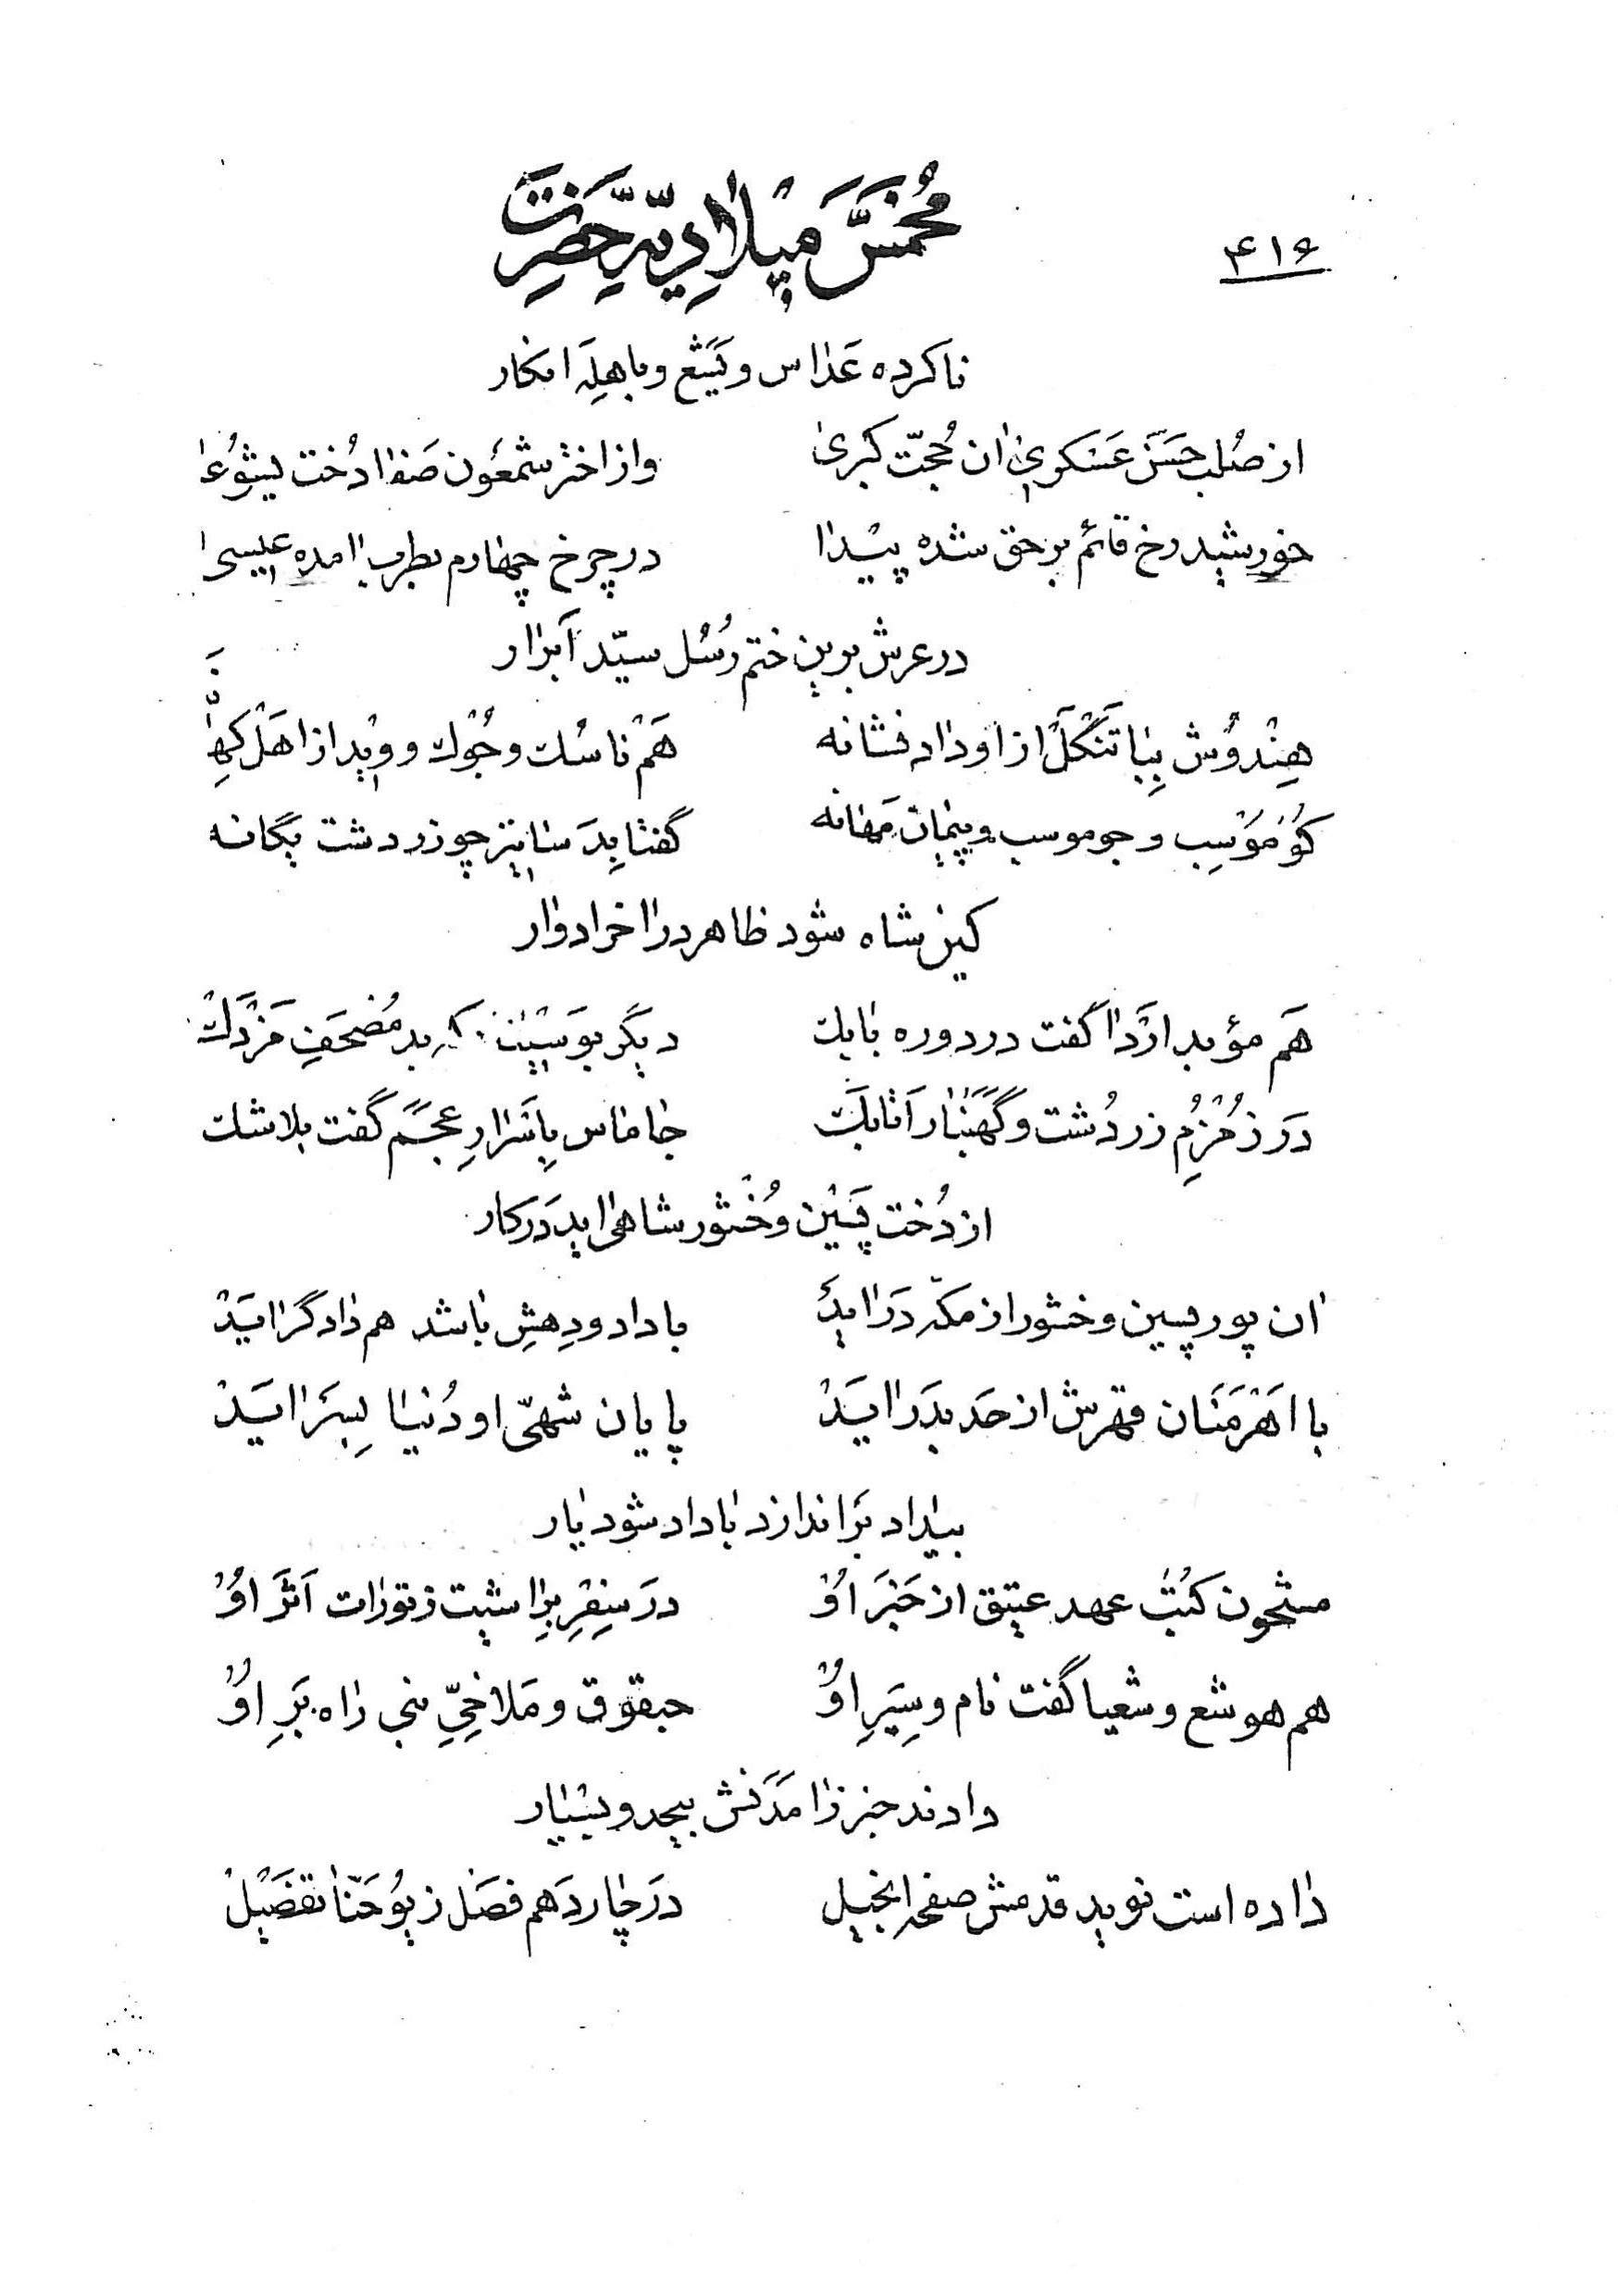 مُخَمَّسَ مِیْلادِیّهِ حَضرَتِ
۴۱۶
ناکرده عَذراس و یَشْع و باهِلِه انکار
از صُلب حَسَنَ عَسَکریِ ان حُجّت کبریٰ وز اختر شمعُون صَفا دُخت یشُوعٰا
خورشید رخ قائم بر حق شده پیْدا در چرخ چهارم بطرب امده عیسیٰ
در عرش برین ختم رُسُل سیّد اَبرار
هِنْدوُش بِبٰا تَنْکَلْ از او داد نشانه هَمْ ناسْک و جُوْک و ویْد از اهَلْ کِهٰانه
گفتا بِدَ سٰاتیر چو زردشت یگانه
کین شاه شود ظاهر در اخر ادوار
هَم مؤبد ازَدا گفت در دوره بٰابک دیگر که بد مُصْحَفِ مَزْدَکْ
دَر زمْزِمُ زردُشت و گَهَنْبٰار اَتابَکْ جاماس بِاَسْرارِ عجَمْ گفت بلاشک
از دُخت پَسیْن وُخْشور شاهی اید دَر کار
ان پور پسین وخشور از مکه دَر اید با داد و دِهِش باشد هم داد گر ایَدْ
با اهَرْمَنَان قهرش از حَد بدَر ایَدْ پایان شهیّ او دُنیٰا بِسَر ایَدْ
بیداد بَر اندازد با داد شود یار
مشحون کُتُبُ عهد عتیق از خَبَر اوُ دَر سِفْرِ بِراشیت ز تورات اَثَر اوُ
هم هوشع و شعیا گفت نام و سِیَرِ اوُ حبقوق و مَلاخیّ نبی راه بَرِ اوُ
دادند خبر ز امَدَنش بیحد و بسْیار
داده است نوید قدمش صفحه انجیل دَر چاردَهم فصَل ز یوُحَنّا تفضَیْلْ